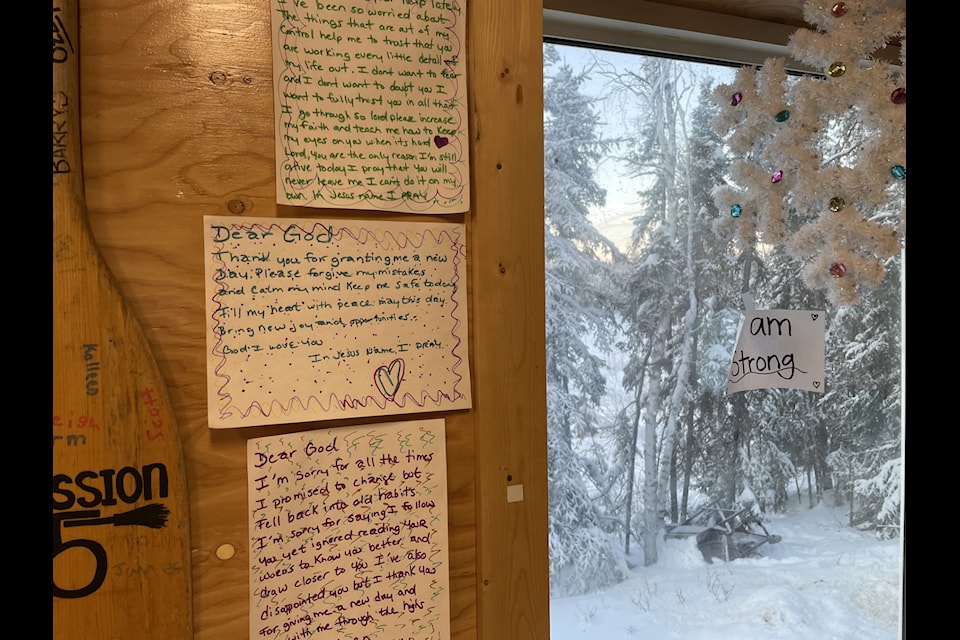 I've been so worried about
The things that are out of my
control help me to trust that you
are working every little detail of
my life out. I don't want to fear
and I don't want to doubt you I
want to fully trust you in all that
I go through so lord please increase
my faith and teach me how to keep
my eyes on you when its hard
Lord, you are the only reason I'm still
alive today I pray that you will
never leave me I can't do it on my
own. In Jesus name I PRAY
Dear God
Thank you for granting me a new
Day. Please forgive my mistakes
and calm my mind keep me safe today
Fill my heart with peace may this day
Bring new joy and opportunities.
God I love you
In Jesus Name, I PRAY
Dear God
I'm sorry for all the times
I promised to change but
Fell back into old habits
I'm sorry for saying I follow
you yet ignored reading your
words to know you better and
draw closer to you I've also
disappointed you but I thank you
for giving me a new day and
with me through the highs
BARRY
Kolleen
Scott
ssion
5
am
strong